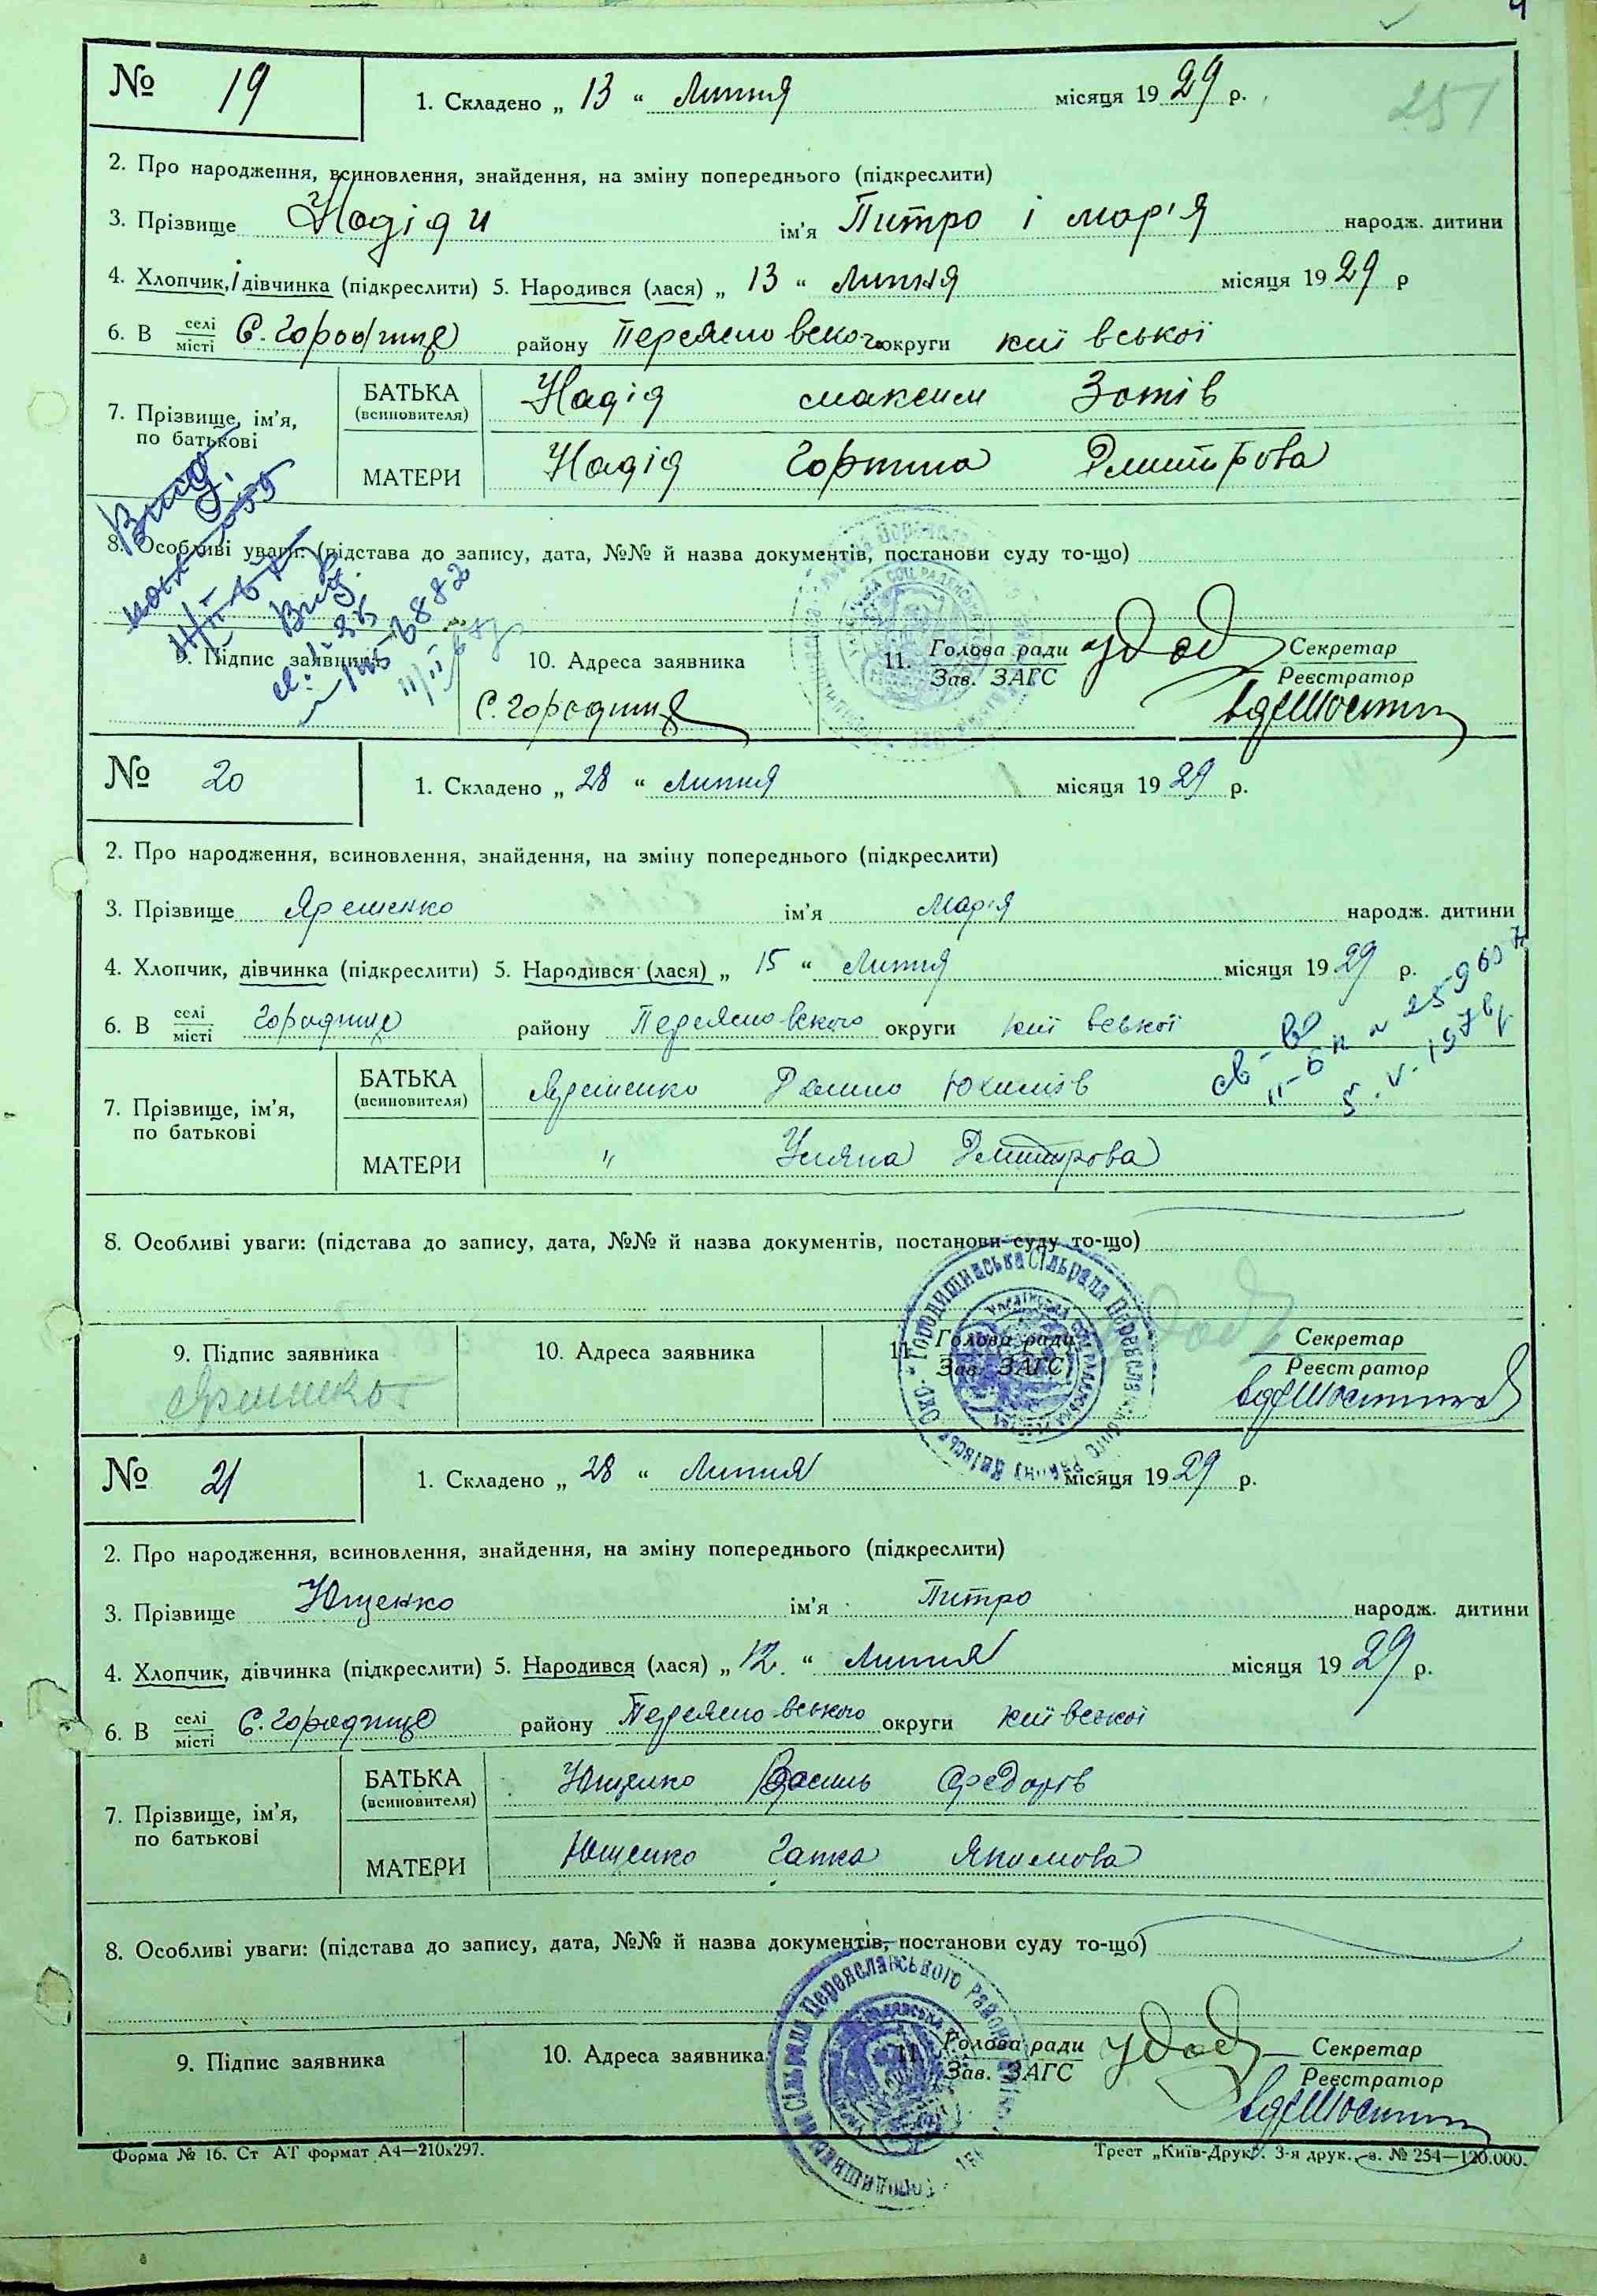 № 19 1. Складено „ 13 “ Липня місяця 1929 р.
251
2. Про народження, всиновлення, знайдення, на зміну попереднього (підкреслити)
3. Прізвище Надіди ім’я Питро і мар’я народж. дитини
4. Хлопчик, і дівчинка (підкреслити) 5. Народився (лася) „ 13 “ Липня місяця 1929 р
6. В селі місті С. Городище району Переяславского округи київської
7. Прізвище, ім’я, по батькові
БАТЬКА (всиновителя) Надід максим Зотів
МАТЕРИ Надід Горпина Дмитрова
8. Особливі уваги: (підстава до запису, дата, №№ й назва документів, постанови суду то-що)
9. Підпис заявника 10. Адреса заявника 11. Голова ради Зав. ЗАГС Удод Секретар Реєстратор
С. Городище
№ 20 1. Складено „ 28 “ Липня місяця 1929 р.
2. Про народження, всиновлення, знайдення, на зміну попереднього (підкреслити)
3. Прізвище Яременко ім’я Мар’я народж. дитини
4. Хлопчик, дівчинка (підкреслити) 5. Народився (лася) „ 15 “ Липня місяця 1929 р.
6. В селі місті Городище району Переяславского округи київської
7. Прізвище, ім’я, по батькові
БАТЬКА (всиновителя) Яременко Данило Юхимів
МАТЕРИ " Уляна Дмитрова
8. Особливі уваги: (підстава до запису, дата, №№ й назва документів, постанови суду то-що)
9. Підпис заявника 10. Адреса заявника 11. Голова ради Зав. ЗАГС Секретар Реєстратор
№ 21 1. Складено „ 28 “ Липня місяця 1929 р.
2. Про народження, всиновлення, знайдення, на зміну попереднього (підкреслити)
3. Прізвище Ющенко ім’я Питро народж. дитини
4. Хлопчик, дівчинка (підкреслити) 5. Народився (лася) „ 12 “ Липня місяця 1929 р.
6. В селі місті С. Городище району Переяславського округи київської
7. Прізвище, ім’я, по батькові
БАТЬКА (всиновителя) Ющенко Василь Федорів
МАТЕРИ Ющенко Гапка Якимова
8. Особливі уваги: (підстава до запису, дата, №№ й назва документів, постанови суду то-що)
9. Підпис заявника 10. Адреса заявника 11. Голова ради Зав. ЗАГС Удод Секретар Реєстратор
Форма № 16. Ст АТ формат А4—210х297. Трест „Київ-Друк“. 3-я друк. з. № 254—120.000.